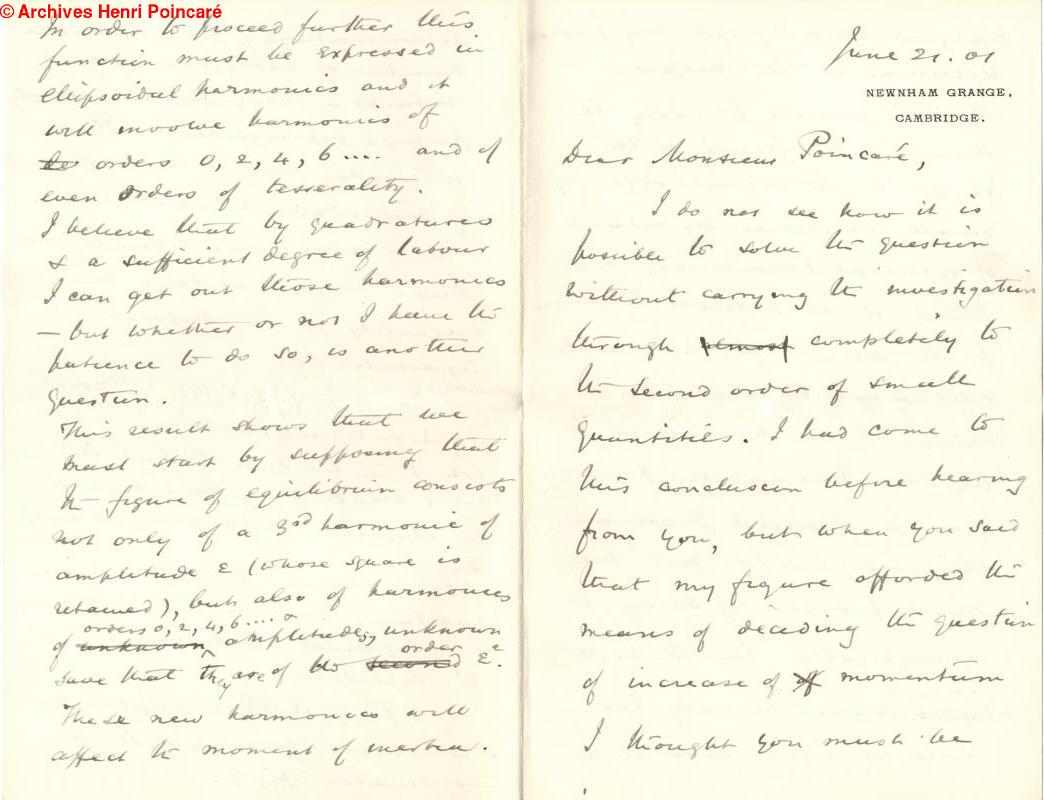 © Archives Henri Poincaré
In order to proceed further this
function must be expressed in
ellipsoidal harmonics and it
will involve harmonics of
orders 0, 2, 4, 6 .... and of
even orders of tesserality.
I believe that by quadratures
& a sufficient degree of labour
I can get out those harmonics
— but whether or not I have the
patience to do so, is another
question.
This result shows that we
must start by supposing that
the figure of equilibrium consists
not only of a 3rd harmonic of
amplitude ε (whose square is
retained), but also of harmonics
orders 0, 2, 4, 6 ....
of unknown amplitudes, unknown
order
save that they are of the second ε².
These new harmonics will
affect the moment of inertia.
June 21. 01
NEWNHAM GRANGE,
CAMBRIDGE.
Dear Monsieur Poincaré,
I do not see how it is
possible to solve the question
without carrying the investigation
through almost completely to
the second order of small
quantities. I had come to
this conclusion before hearing
from you, but when you said
that my figure afforded the
means of deciding the question
of increase of momentum
I thought you must be